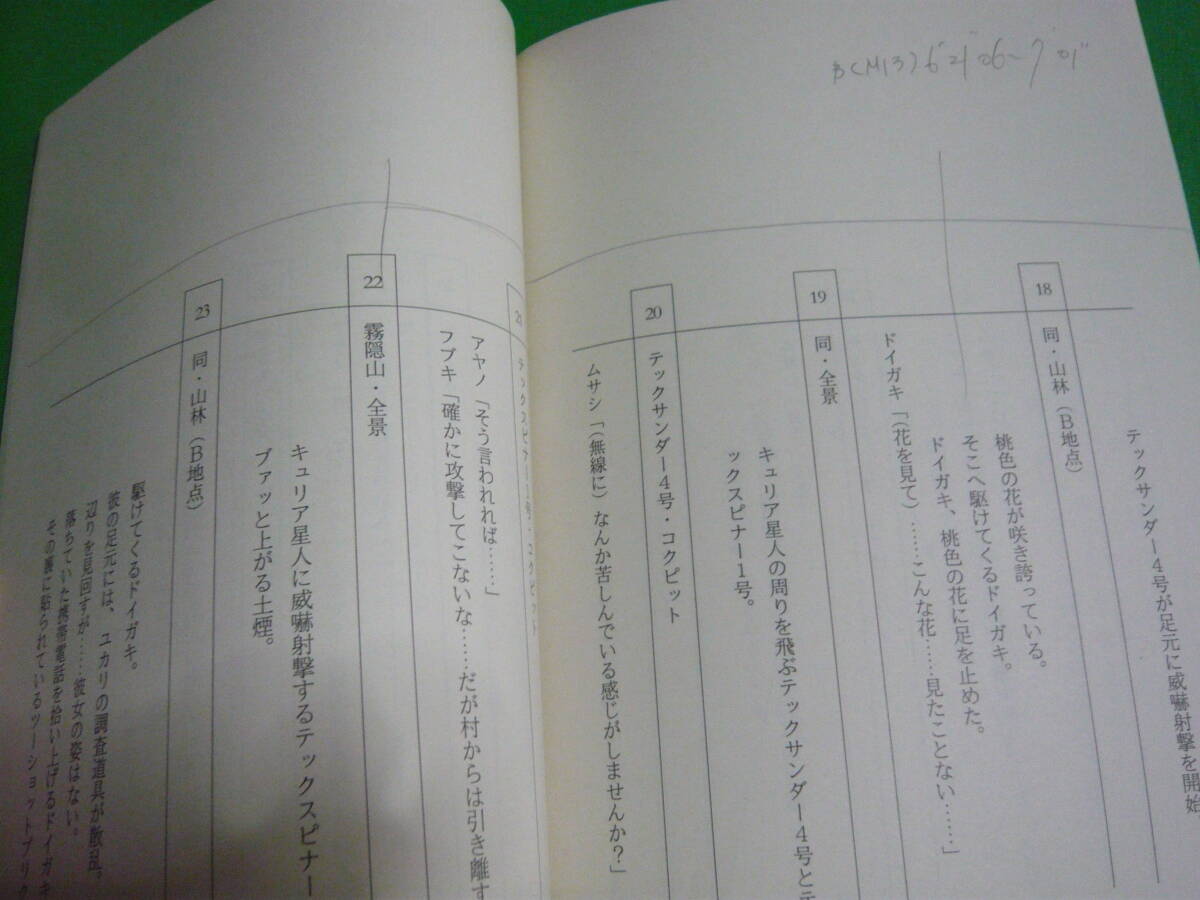 テックサンダー4号が足元に威嚇射撃を開始
18 同・山林（B地点）
桃色の花が咲き誇っている。
そこへ駆けてくるドイガキ。
ドイガキ、桃色の花に足を止めた。
ドイガキ「（花を見て）……こんな花……見たことない……」
19 同・全景
キュリア星人の周りを飛ぶテックサンダー4号とテ
ックスピナー1号。
20 テックサンダー4号・コクピット
ムサシ「（無線に）なんか苦しんでいる感じがしませんか？」
21 テックスピナー1号・コクピット
アヤノ「そう言われれば……」
フブキ「確かに攻撃してこないな……だが村からは引き離す
22 霧隠山・全景
キュリア星人に威嚇射撃するテックスピナー
ブァッと上がる土煙。
23 同・山林（B地点）
駆けてくるドイガキ。
彼の足元には、ユカリの調査道具が散乱。
辺りを見回すが……彼女の姿はない。
落ちていた携帯電話を拾い上げるドイガキ
その裏に貼られているツーショットプリク